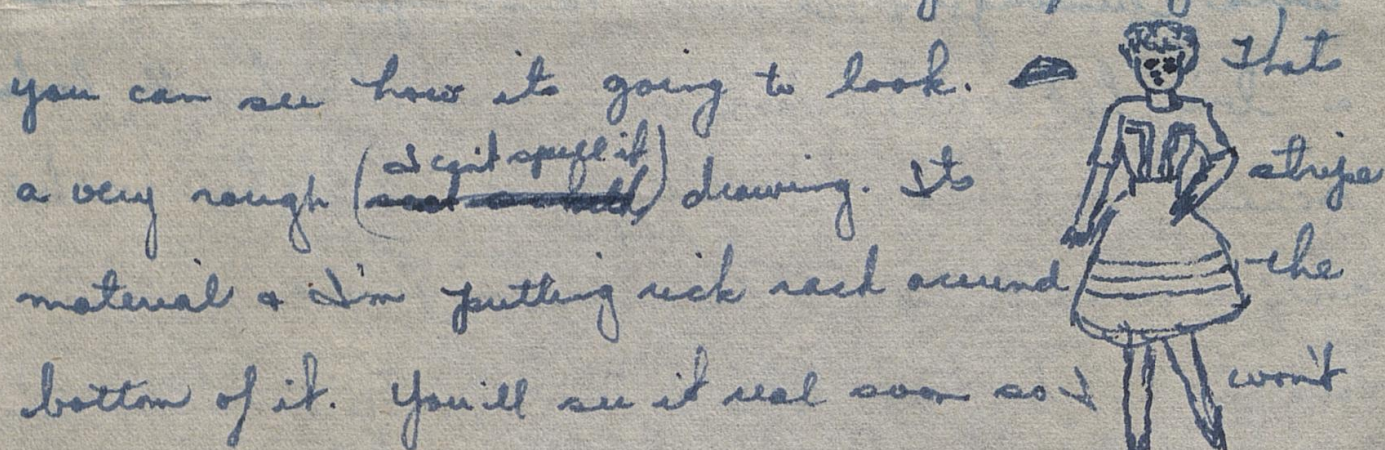 you can see how its going to look. Thats
a very rough (I can't spell it) drawing. Its stripe
material & I'm putting rick rack around the
bottom of it. You'll see it real soon so I won't